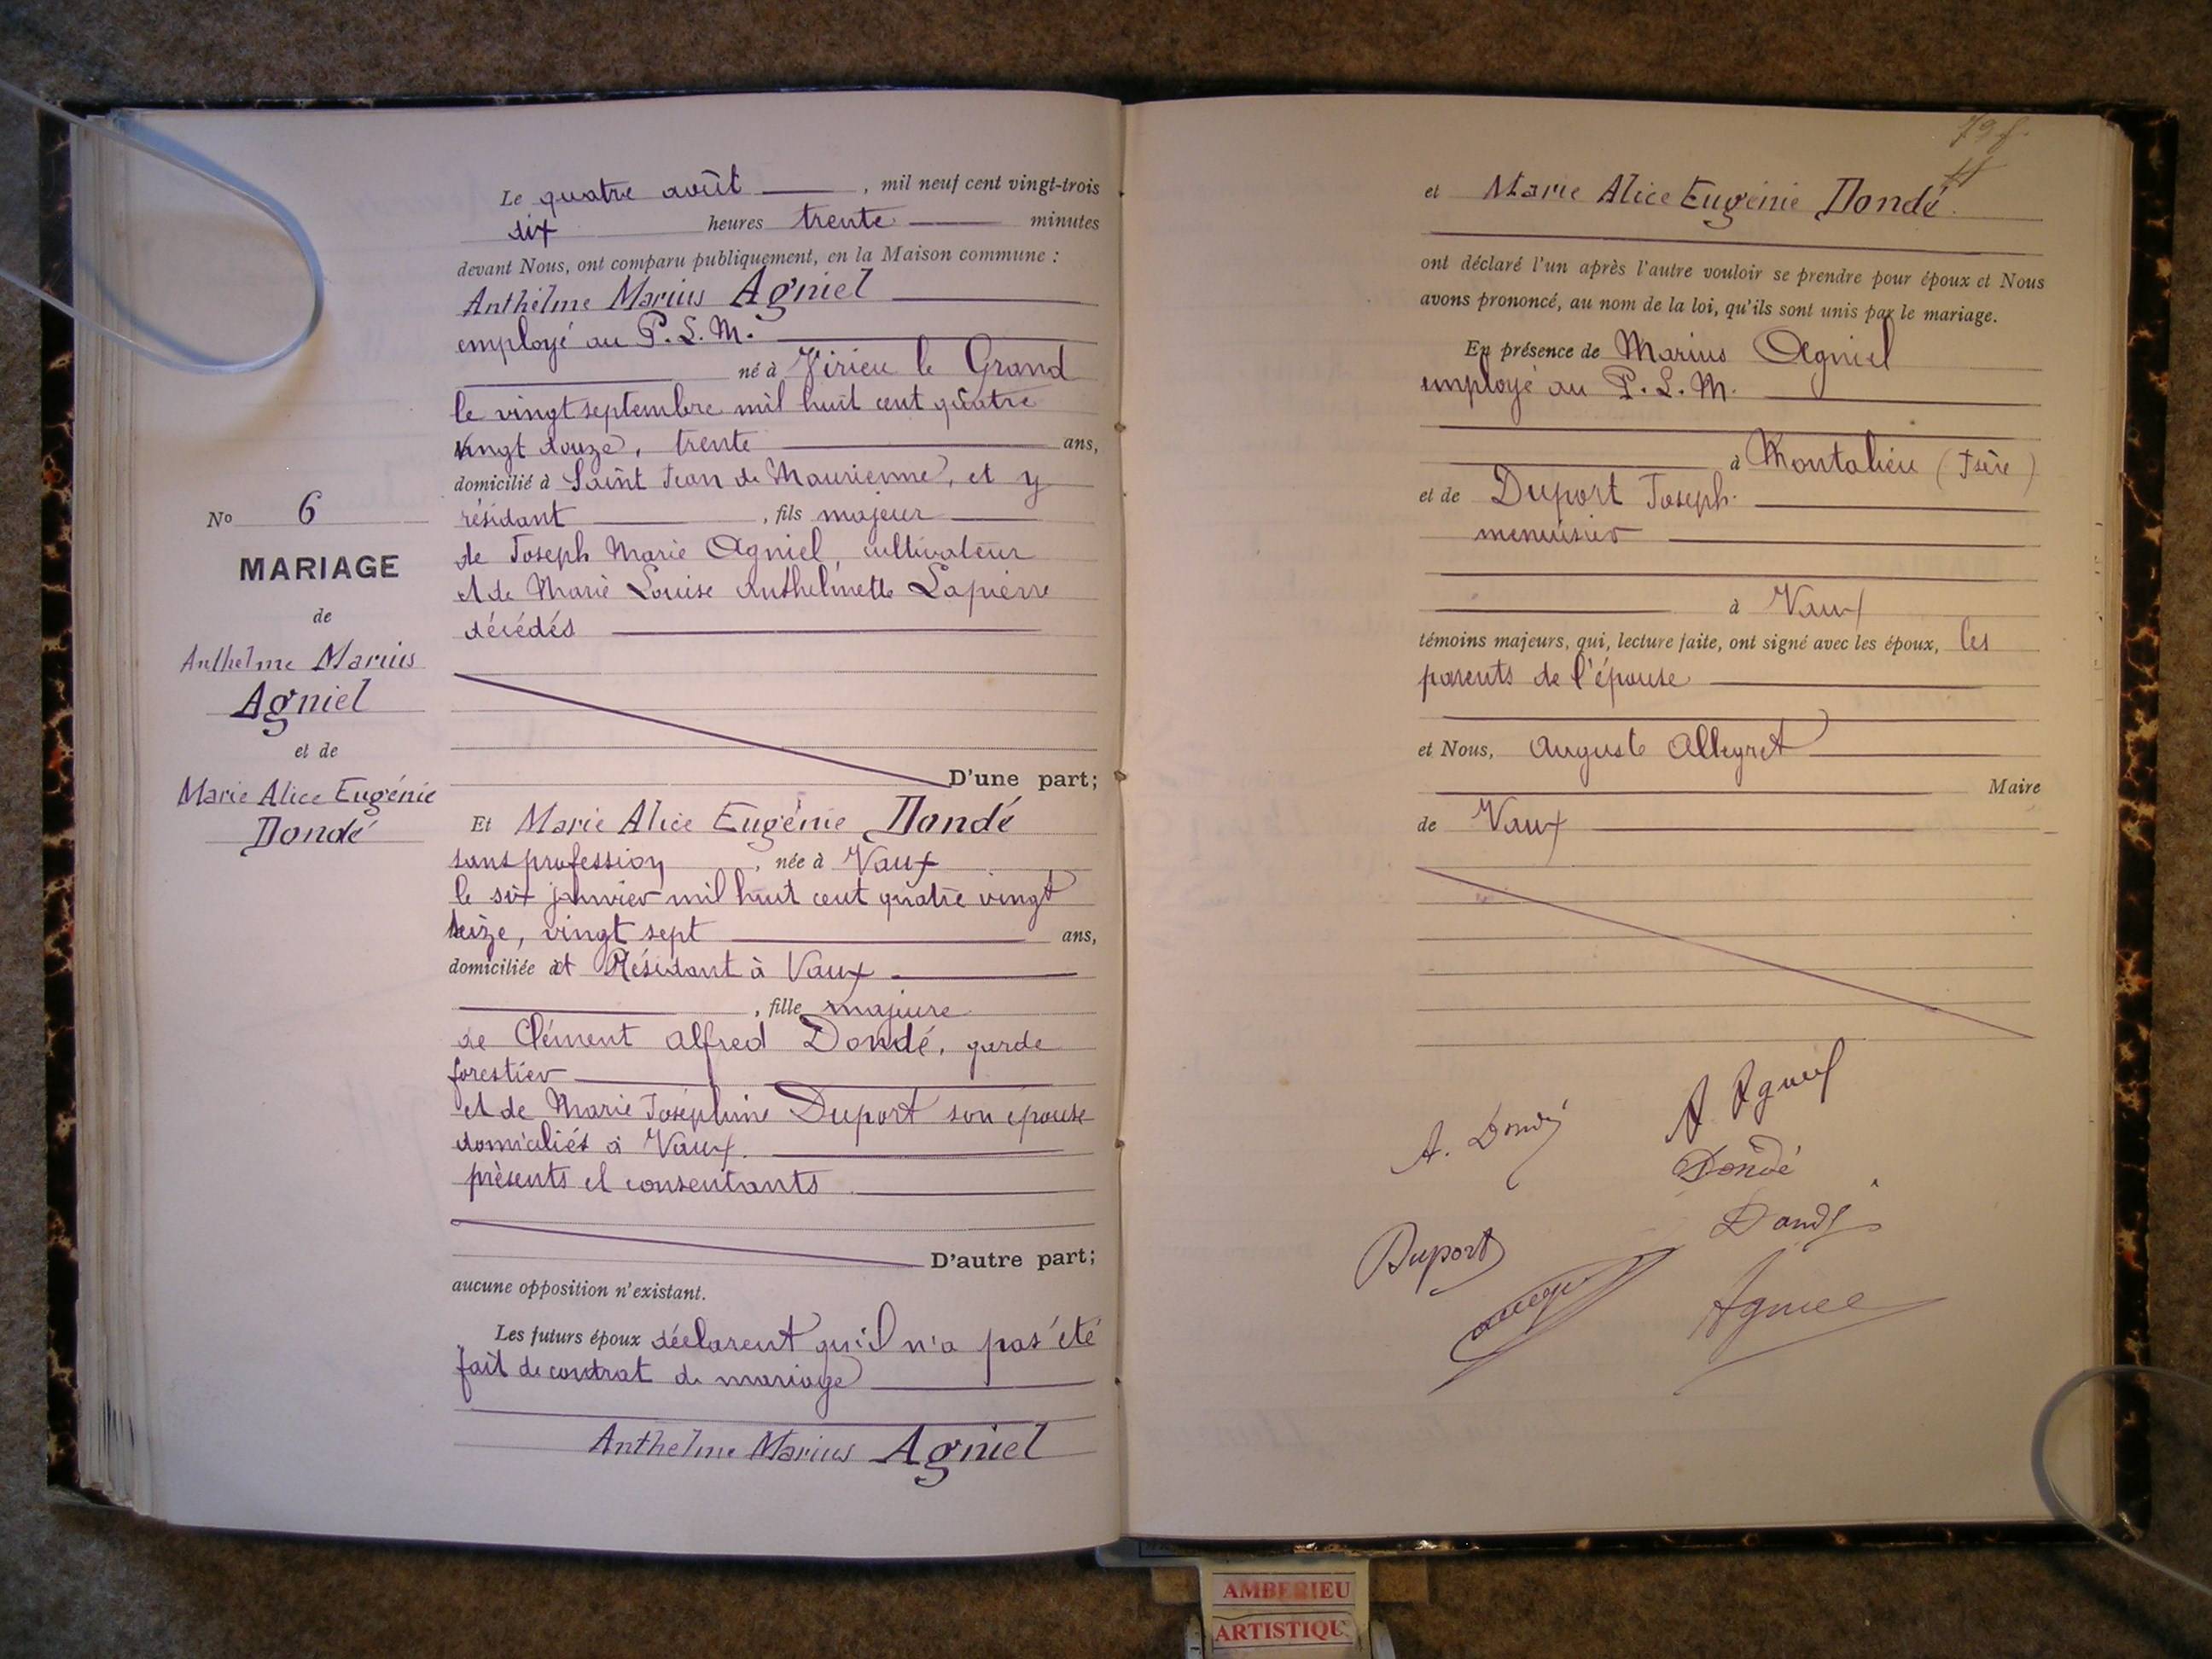 Le quatre août, mil neuf cent vingt-trois
dix heures trente minutes
devant Nous, ont comparu publiquement, en la Maison commune :
Anthelme Marius Agniel
employé au P.L.M.
né à Virieu le Grand
le vingt septembre mil huit cent quatre
vingt douze, trente ans,
domicilié à Saint Jean de Maurienne, et y
résidant, fils majeur
de Joseph Marie Agniel, cultivateur
et de Marie Louise Anthelmette Lapierre
décédés
D'une part;
No 6
MARIAGE
de
Anthelme Marius
Agniel
et de
Marie Alice Eugénie
Dondé
Et Marie Alice Eugénie Dondé
sans profession, née à Vaux
le six janvier mil huit cent quatre vingt
seize, vingt sept ans,
domiciliée et Résidant à Vaux
, fille majeure
de Clément Alfred Dondé, garde
forestier
et de Marie Joséphine Duport son épouse
domiciliés à Vaux.
présents et consentants
D'autre part;
aucune opposition n'existant.
Les futurs époux déclarent qu'il n'a pas été
fait de contrat de mariage
Anthelme Marius Agniel
79 f.
et Marie Alice Eugénie Dondé.
ont déclaré l'un après l'autre vouloir se prendre pour époux et Nous
avons prononcé, au nom de la loi, qu'ils sont unis par le mariage.
En présence de Marius Agniel
employé au P.L.M.
à Montalieu (Isère)
et de Duport Joseph
menuisier
à Vaux
témoins majeurs, qui, lecture faite, ont signé avec les époux, les
parents de l'épouse
et Nous, Auguste Allegret
Maire
de Vaux
A. Agniel
A. Dondé
Dondé
Dondé
Duport
Agniel
AMBERIEU
ARTISTIQU